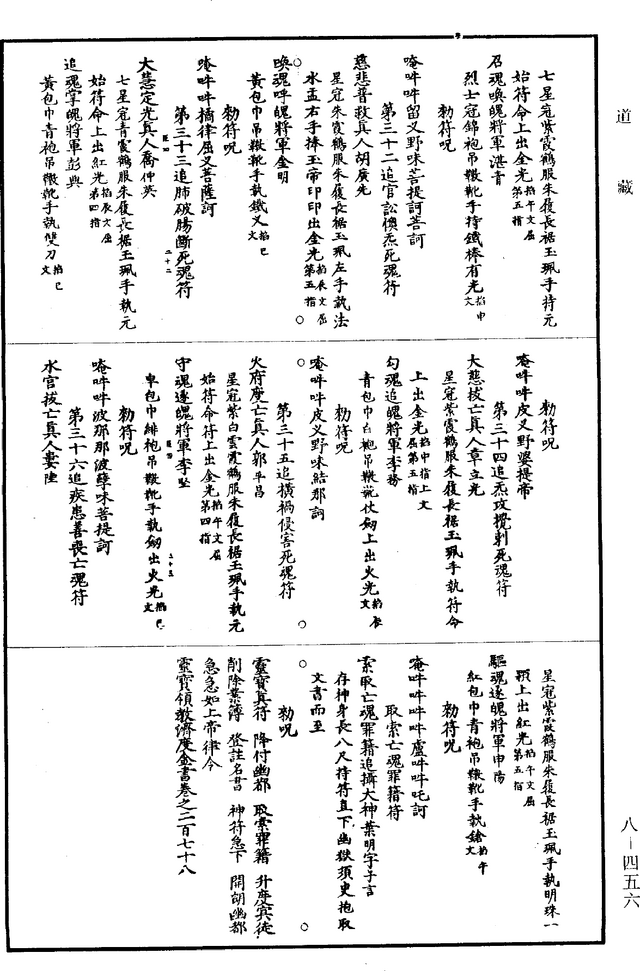 道藏
七星冠紫霞鶴服朱履長裾玉珮手持元
始符命上出金光掐午文屈第五指
召魂喚魄將軍湛青
烈士冠錦袍吊鞿靴手持鐵棒有光掐申文
勑符呪
唵吽吽留叉野味菩提訶菩訶
第三十二追官訟懊炁死魂符
慈悲普救真人胡廣先
星冠朱霞鶴服朱履長裾玉珮左手執法
水盂右手捧玉帝印印出金光掐辰文屈第五指
喚魂呼魄將軍金明
黃包巾吊鞿靴手執鐵叉掐巳文
勑符呪
唵吽吽橋律屈叉菩薩訶
第三十三追肺破腸斷死魂符
大慧定光真人喬仲英
七星冠青霞鶴服朱履長裾玉珮手執元
始符命上出紅光掐辰文屈第四指
追魂掌魄將軍彭奥
黃包巾青袍吊鞿靴手執雙刀掐巳文
勑符呪
唵吽吽皮叉野婆提帝
第三十四追炁攻攪刺死魂符
大慈拔亡真人章立光
星冠紫霞鶴服朱履長裾玉珮手執符命
上出金光掐中指上文屈第五指
勾魂追魄將軍李務
青包巾白袍吊鞿靴仗劒上出火光掐辰文
勑符呪
唵吽吽皮叉野味結那訶
第三十五追橫禍侵害死魂符
火府度亡真人郭平昌
星冠紫白雲霞鶴服朱履長裾玉珮手執元
始符命符上出金光掐午文屈第四指
守魂逐魄將軍李堅
皁包巾緋袍吊鞿靴手執劒出火光掐巳文
勑符呪
唵吽吽波那那波孽味菩提訶
第三十六追疾患善喪亡魂符
水官拔亡真人婁陸
星冠紫霞鶴服朱履長裾玉珮手執明珠一
顆上出紅光掐午文屈第五指
驅魂逐魄將軍申陽
紅包巾青袍吊鞿靴手執鎗掐午文
勑符呪
唵吽吽吽吽盧吽吽吒訶
取索亡魂罪籍符
索取亡魂罪籍追攝大神葉明字子言
存神身長八尺持符直下幽獄須臾抱取
文書而至
勑呪
靈寶真符 降付幽都 取索罪籍 升度賓徒
削除業簿 登註名書 神符急下 開胡幽都
急急如上帝律令
靈寶領教濟度金書卷之二百七十八
八－四五六